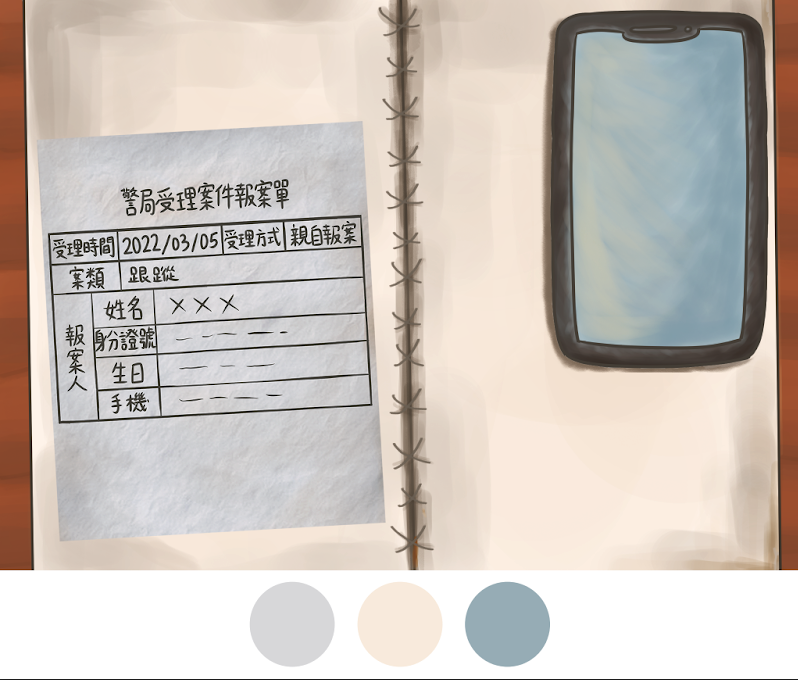 警局受理案件報案單
受理時間 2022/03/05 受理方式 親自報案
案類 跟蹤
報案人
姓名 XXX
身分證號
生日
手機